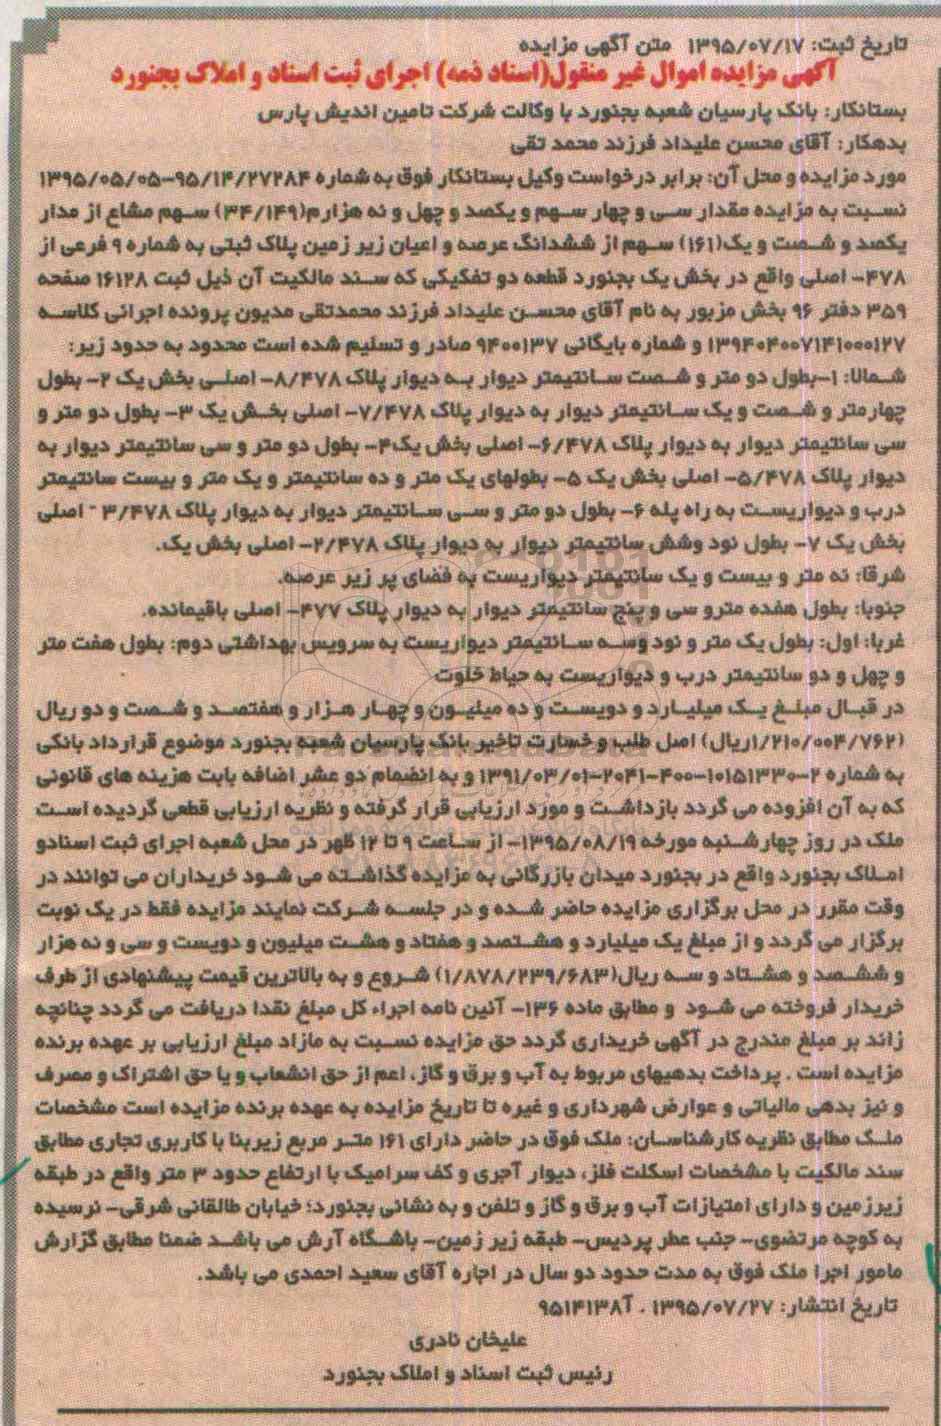 تاریخ ثبت: ۱۳۹۵/۰۷/۱۷ متن آگهی مزایده
آگهی مزایده اموال غیر منقول(اسناد ذمه) اجرای ثبت اسناد و املاک بجنورد
بستانکار: بانک پارسیان شعبه بجنورد با وکالت شرکت تامین اندیش پارس
بدهکار: آقای محسن علیداد فرزند محمد تقی
مورد مزایده و محل آن: برابر درخواست وکیل بستانکار فوق به شماره ۹۵/۱۴/۲۷۲۸۴–۱۳۹۵/۰۵/۰۵
نسبت به مزایده مقدار سی و چهار سهم و یکصد و چهل و نه هزارم(۳۴/۱۴۹) سهم مشاع از مدار
یکصد و شصت و یک(۱۶۱) سهم از ششدانگ عرصه و اعیان زیر زمین پلاک ثبتی به شماره ۹ فرعی از
۴۷۸– اصلی واقع در بخش یک بجنورد قطعه دو تفکیکی که سند مالکیت آن ذیل ثبت ۱۶۱۲۸ صفحه
۳۵۹ دفتر ۹۶ بخش مزبور به نام آقای محسن علیداد فرزند محمدتقی مدیون پرونده اجرائی کلاسه
۱۳۹۴۰۴۰۰۷۱۴۱۰۰۰۱۲۷ و شماره بایگانی ۹۴۰۰۱۳۷ صادر و تسلیم شده است محدود به حدود زیر:
شمالا: ۱–بطول دو متر و شصت سانتیمتر دیوار به دیوار پلاک ۸/۴۷۸– اصلی بخش یک ۲– بطول
چهارمتر و شصت و یک سانتیمتر دیوار به دیوار پلاک ۷/۴۷۸– اصلی بخش یک ۳– بطول دو متر و
سی سانتیمتر دیوار به دیوار پلاک ۶/۴۷۸– اصلی بخش یک۴– بطول دو متر و سی سانتیمتر دیوار به
دیوار پلاک ۵/۴۷۸– اصلی بخش یک ۵– بطولهای یک متر و ده سانتیمتر و یک متر و بیست سانتیمتر
درب و دیواریست به راه پله ۶– بطول دو متر و سی سانتیمتر دیوار به دیوار پلاک ۳/۴۷۸ – اصلی
بخش یک ۷– بطول نود وشش سانتیمتر دیوار به دیوار پلاک ۲/۴۷۸– اصلی بخش یک.
شرقا: نه متر و بیست و یک سانتیمتر دیواریست به فضای پر زیر عرصه.
جنوبا: بطول هفده مترو سی و پنج سانتیمتر دیوار به دیوار پلاک ۴۷۷– اصلی باقیمانده.
غربا: اول: بطول یک متر و نود وسه سانتیمتر دیواریست به سرویس بهداشتی دوم: بطول هفت متر
و چهل و دو سانتیمتر درب و دیواریست به حیاط خلوت
در قبال مبلغ یک میلیارد و دویست و ده میلیون و چهار هزار و هفتصد و شصت و دو ریال
(۱/۲۱۰/۰۰۴/۷۶۲ریال) اصل طلب و خسارت تاخیر بانک پارسیان شعبه بجنورد موضوع قرارداد بانکی
به شماره ۲–۱۰۱۵۱۳۳۰–۴۰۰–۲۰۴۱–۱۳۹۱/۰۳/۰۱ و به انضمام دو عشر اضافه بابت هزینه های قانونی
که به آن افزوده می گردد بازداشت و مورد ارزیابی قرار گرفته و نظریه ارزیابی قطعی گردیده است
ملک در روز چهارشنبه مورخه ۱۳۹۵/۰۸/۱۹– از ساعت ۹ تا ۱۲ ظهر در محل شعبه اجرای ثبت اسنادو
املاک بجنورد واقع در بجنورد میدان بازرگانی به مزایده گذاشته می شود خریداران می توانند در
وقت مقرر در محل برگزاری مزایده حاضر شده و در جلسه شرکت نمایند مزایده فقط در یک نوبت
برگزار می گردد و از مبلغ یک میلیارد و هشتصد و هفتاد و هشت میلیون و دویست و سی و نه هزار
و ششصد و هشتاد و سه ریال(۱/۸۷۸/۲۳۹/۶۸۳) شروع و به بالاترین قیمت پیشنهادی از طرف
خریدار فروخته می شود و مطابق ماده ۱۳۶– آئین نامه اجراء کل مبلغ نقدا دریافت می گردد چنانچه
زائد بر مبلغ مندرج در آگهی خریداری گردد حق مزایده نسبت به مازاد مبلغ ارزیابی بر عهده برنده
مزایده است . پرداخت بدهیهای مربوط به آب و برق و گاز، اعم از حق انشعاب و یا حق اشتراک و مصرف
و نیز بدهی مالیاتی و عوارض شهرداری و غیره تا تاریخ مزایده به عهده برنده مزایده است مشخصات
ملک مطابق نظریه کارشناسان: ملک فوق در حاضر دارای ۱۶۱ متر مربع زیربنا با کاربری تجاری مطابق
سند مالکیت با مشخصات اسکلت فلز، دیوار آجری و کف سرامیک با ارتفاع حدود ۳ متر واقع در طبقه
زیرزمین و دارای امتیازات آب و برق و گاز و تلفن و به نشانی بجنورد؛ خیابان طالقانی شرقی– نرسیده
به کوچه مرتضوی– جنب عطر پردیس– طبقه زیر زمین– باشگاه آرش می باشد ضمنا مطابق گزارش
مامور اجرا ملک فوق به مدت حدود دو سال در اجاره آقای سعید احمدی می باشد.
تاریخ انتشار: ۱۳۹۵/۰۷/۲۷ . آ۹۵۱۴۱۳۸
علیخان نادری
رئیس ثبت اسناد و املاک بجنورد